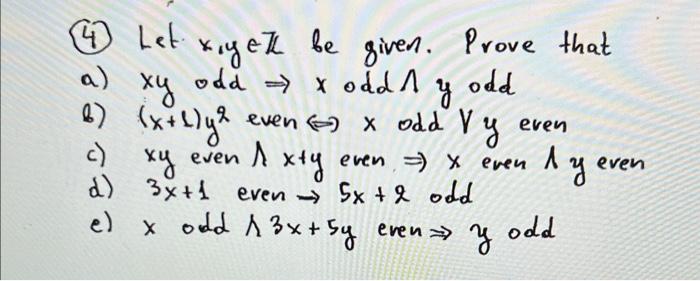 ④ Let x,y∈ℤ be given. Prove that
a) xy odd ⇒ x odd ∧ y odd
b) (x+1)y² even ⇔ x odd ∨ y even
c) xy even ∧ x+y even ⇒ x even ∧ y even
d) 3x+1 even → 5x+2 odd
e) x odd ∧ 3x+5y even ⇒ y odd